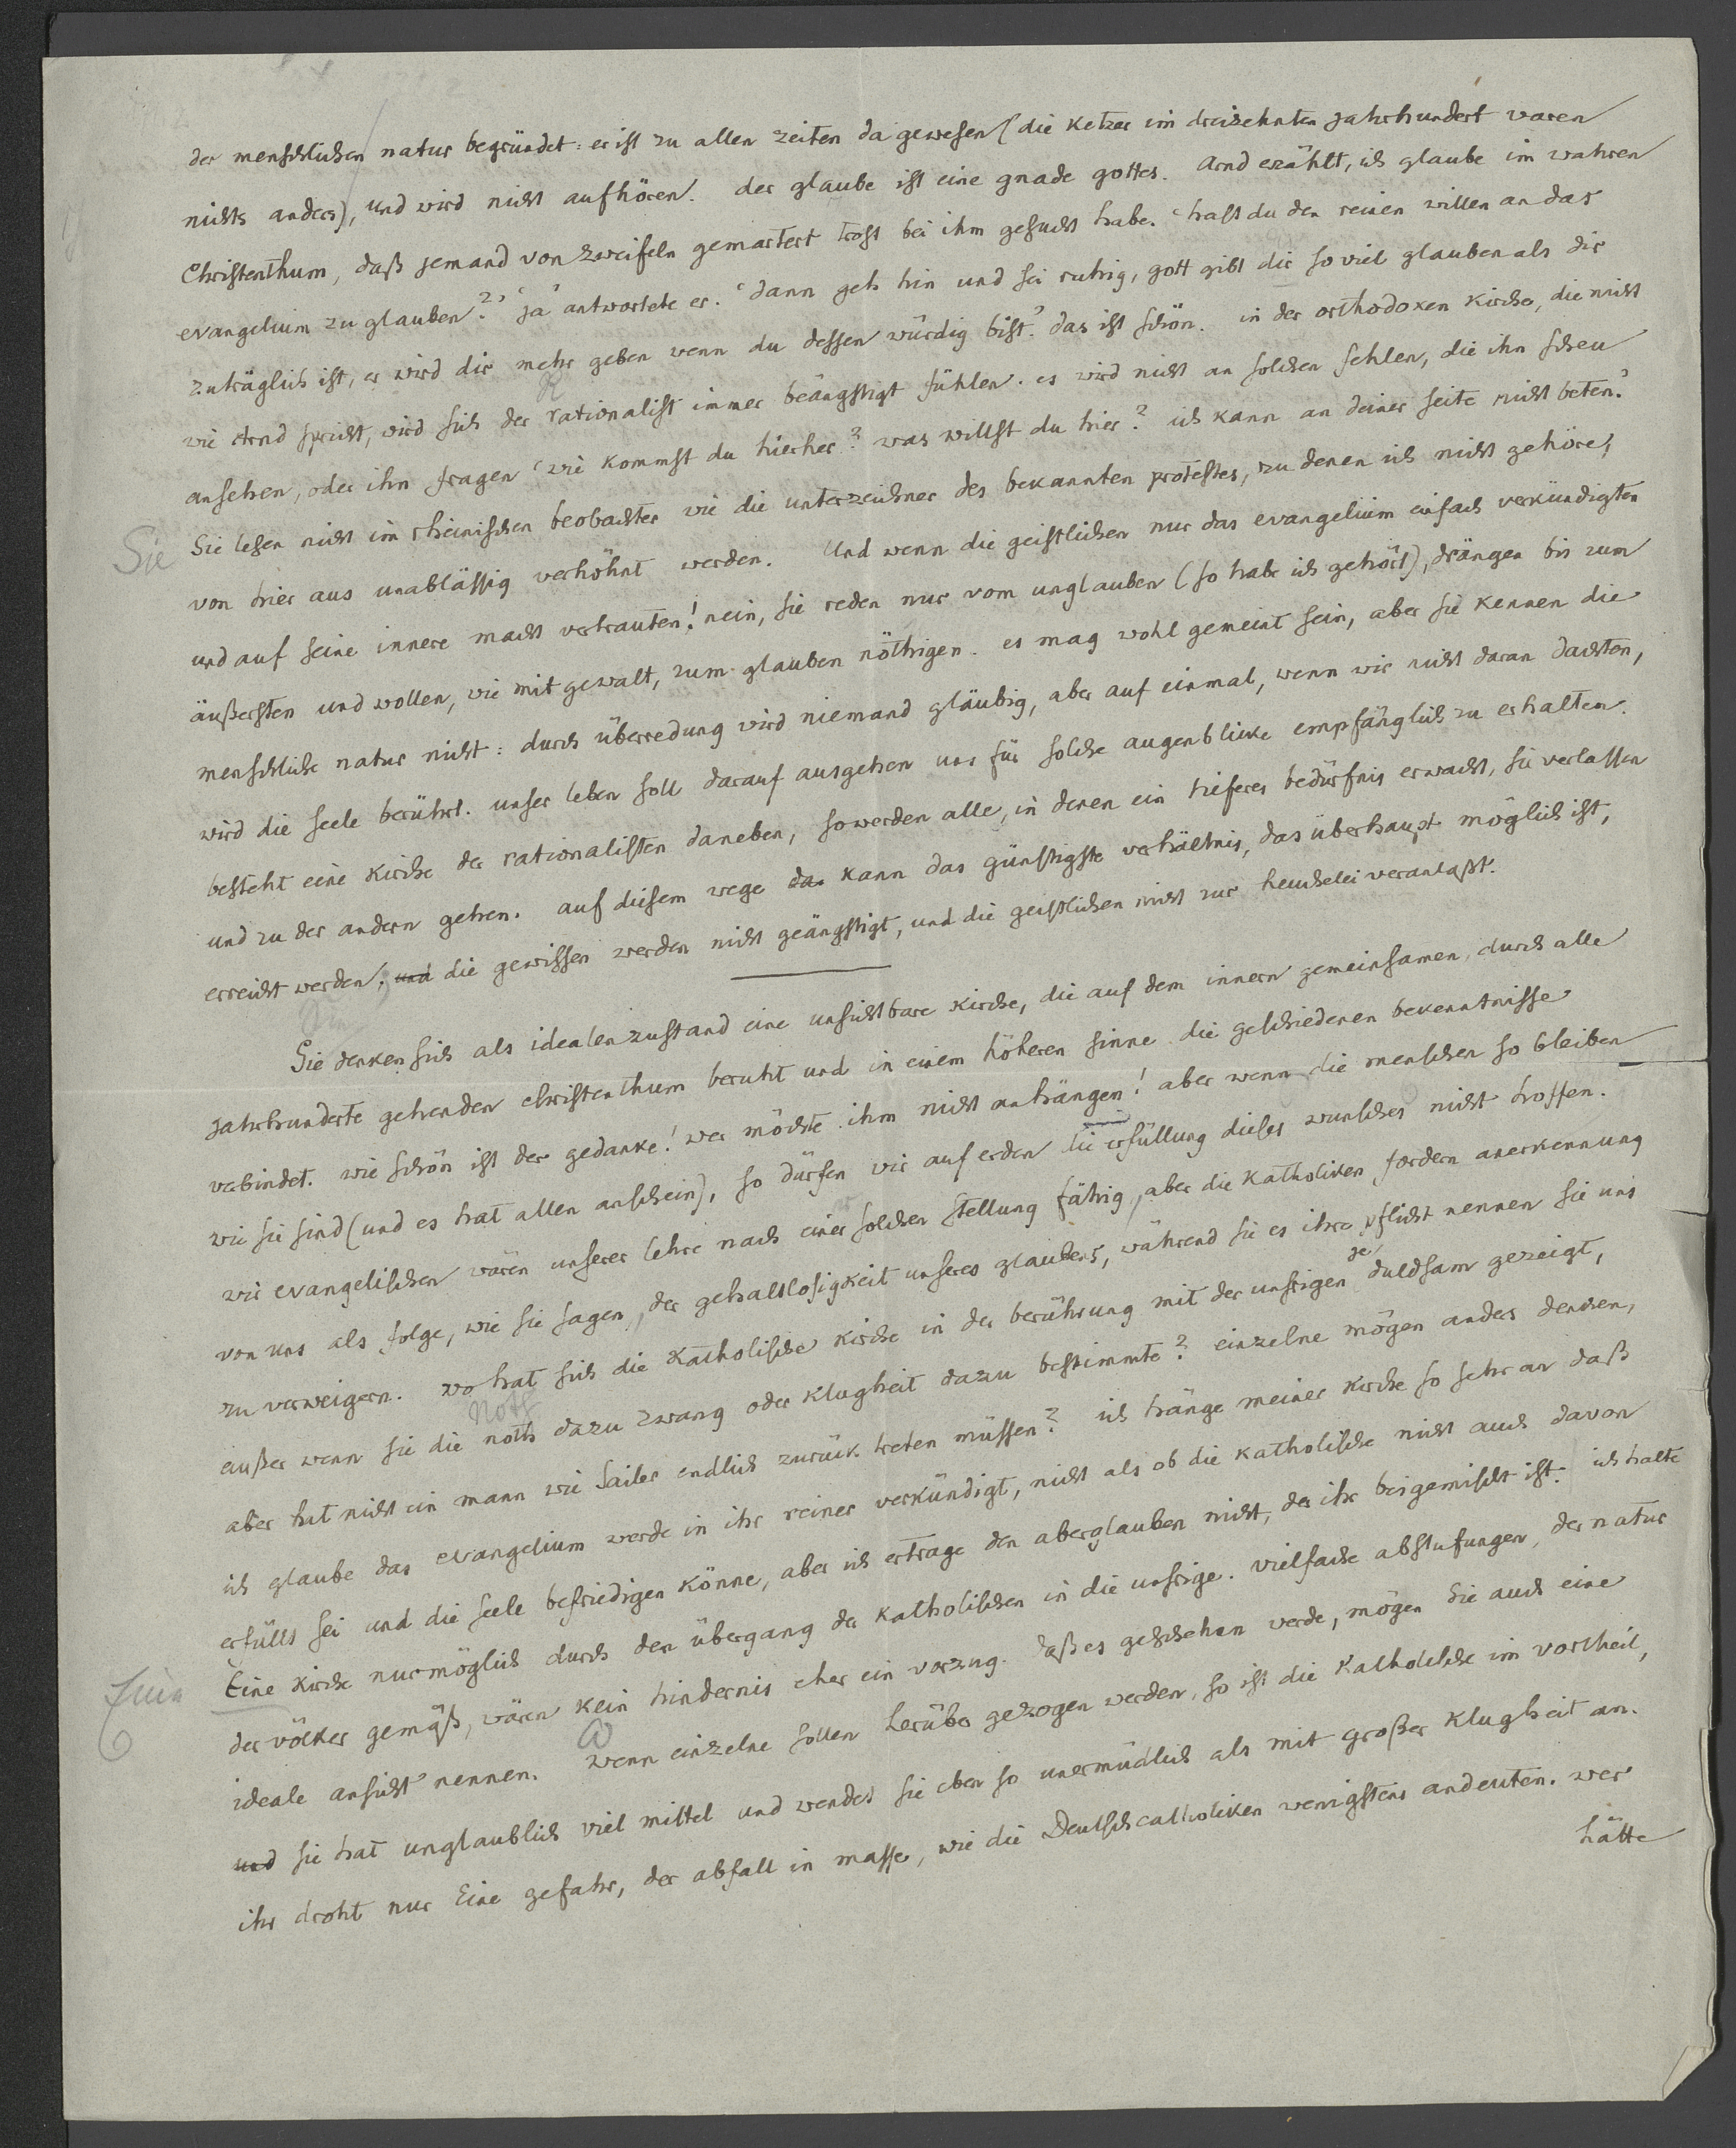 der menschlichen natur begründet: er ist zu allen zeiten da gewesen (die ketzer im dreizehnten jahrhundert waren
nichts anders), und wird nicht aufhören. der glaube ist eine gnade gottes. Arnd erzählt, ich glaube im wahren
Christenthum, daß jemand von zweifeln gemartert trost bei ihm gesucht habe. 'hast du den reinen willen an das
evangelium zu glauben?' 'ja' antwortete er. 'dann geh hin und sei ruhig, gott gibt dir so viel glauben als dir
zuträglich ist, er wird dir mehr geben wenn du dessen würdig bist.' das ist schön. in der orthodoxen kirche, die nicht
wie Arnd spricht, wird sich der rationalist immer beängstigt fühlen. es wird nicht an solchen fehlen, die ihn scheu
R
ansehen, oder ihn fragen 'wie kommst du hierher? was willst du hier? ich kann an deiner seite nicht beten.'
Sie
Sie lesen nicht im rheinischen beobachter wie die unterzeichner des bekannten protestes, zu denen ich nicht gehöre,
von hier aus unablässig verhöhnt werden. Und wenn die geistlichen nur das evangelium einfach verkündigten
und auf seine innere macht vertrauten! nein, sie reden nur vom unglauben (so habe ich gehört), drängen bis zum
äußersten und wollen, wie mit gewalt, zum glauben nöthigen. es mag wohl gemeint sein, aber sie kennen die
menschliche natur nicht: durch überredung wird niemand gläubig, aber auf einmal, wenn wir nicht daran dachten,
wird die seele berührt. unser leben soll darauf ausgehen uns für solche augenblicke empfänglich zu erhalten.
besteht eine kirche der rationalisten daneben, so werden alle, in denen ein tieferes bedürfnis erwacht, sie verlassen
und zu der andern gehen. auf diesem wege da kann das günstigste verhältnis, das überhaupt möglich ist,
erreicht werden; und die gewissen werden nicht geängstigt, und die geistlichen nicht zur heuchelei veranlaßt.
Sie denken sich als idealen zustand eine unsichtbare kirche, die auf dem innern gemeinsamen, durch alle
jahrhunderte gehenden christenthum beruht und in einem höheren sinne die geschiedenen bekenntnisse
verbindet. wie schön ist der gedanke! wer möchte ihm nicht anhängen! aber wenn die menschen so bleiben
wie sie sind (und es hat allen anschein), so dürfen wir auf erden die erfüllung dieses wunsches nicht hoffen.
wir evangelischen wären unserer lehre nach einer solchen stellung fähig, aber die katholiken fordern anerkennung
von uns als folge, wie sie sagen, der gehaltlosigkeit unseres glaubens, während sie es ihre pflicht nennen sie uns
zu verweigern. wo hat sich die katholische kirche in der berührung mit der unsrigen je duldsam gezeigt,
außer wenn sie die noth dazu zwang oder klugheit dazu bestimmte? einzelne mögen anders denken,
Noth
aber hat nicht ein mann wie Sailer endlich zurück treten müssen? ich hänge meiner kirche so sehr an daß
ich glaube das evangelium werde in ihr reiner verkündigt, nicht als ob die katholische nicht auch davon
erfüllt sei und die seele befriedigen könne, aber ich ertrage den aberglauben nicht, der ihr beigemischt ist. ich halte
Eine kirche nur möglich durch den übergang der katholischen in die unsrige. vielfache abstufungen, der natur
der völker gemäß, wären kein hindernis eher ein vorzug. daß es geschehen werde, mögen Sie auch eine
ideale ansicht nennen. wenn einzelne sollen herüber gezogen werden, so ist die katholische im vortheil,
und sie hat unglaublich viel mittel und wendet sie eben so unermüdlich als mit großer klugheit an.
ihr droht nur Eine gefahr, der abfall in masse, wie die Deutschcatholiken wenigstens andeuten. wer
hätte